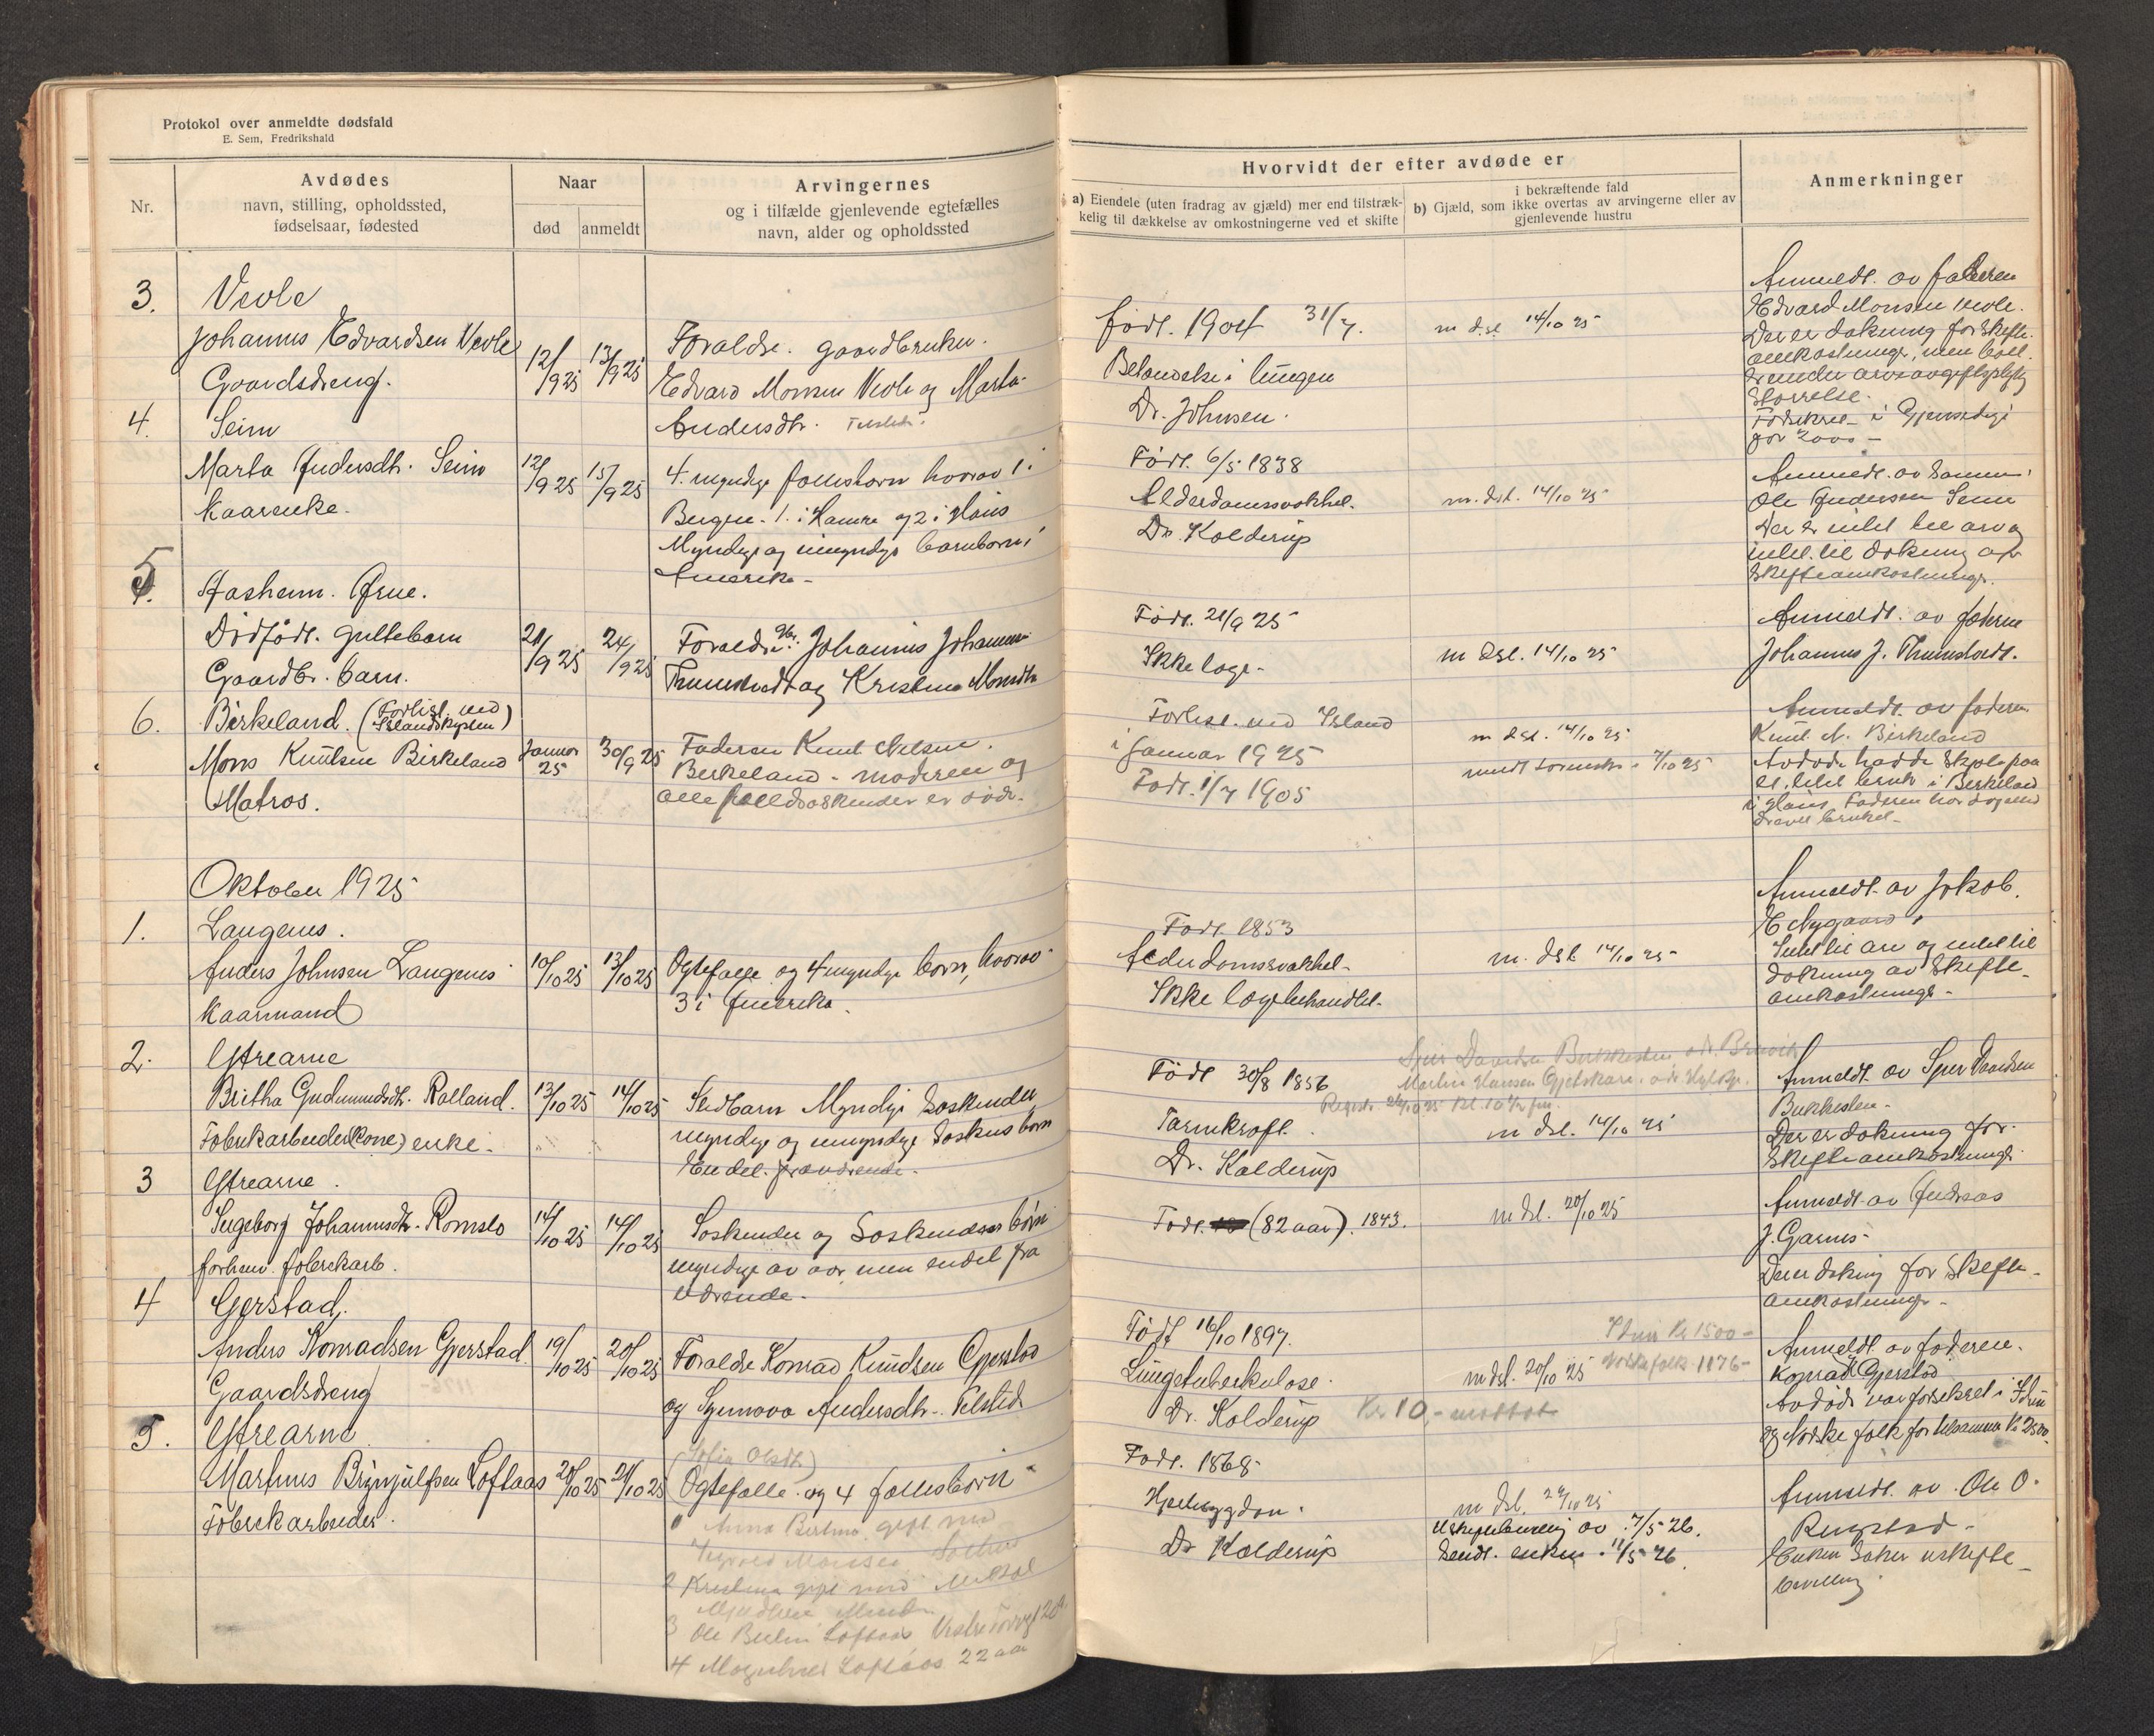 Protokol over anmeldte dødsfald
E. Sem, Fredrikshald
Nr.
Avdødes
navn, stilling, opholdssted,
fødselsaar, fødested
Naar
død
anmeldt
Arvingernes
og i tilfælde gjenlevende egtefælles
navn, alder og opholdssted
Hvorvidt der efter avdøde er
a) Eiendele (uten fradrag av gjæld) mer end tilstræk-
kelig til dækkelse av omkostningerne ved et skifte
i bekræftende fald
b) Gjæld, som ikke overtas av arvingerne eller av
gjenlevende hustru
Anmerkninger
3. Vevle
Johannes Edvardsen Vevle
Gaardsdreng.
12/9 25
13/9 25
Foraldre. gaardbruker.
Edvard Monsen Vevle og Marta
Andersdtr.
født. 1904 31/7.
Betændelse i lungen
Dr. Johnsen.
m dsl 14/10 25
Anmeldt. av faderen
Edvard Monsen Vevle.
Der er dækning for skifte-
omkostninger, men
størrelse.
i Gjensidige
for 2000 –
4. Seim
Marta Andersdtr. Seim
Kaarenke.
12/9 25
15/9 25
4. myndige fællesbørn hvorav 1 i
Bergen. 1. i Hamre og 2 i Haus
Myndige og umyndige barnebørn i
Amerika –
Født. 6/5 1838
Alderdomssvakhet.
Dr. Kolderup
m. dsl. 14/10 25
Anmeldt. av sønnen
Ole Andersen Seim
Der er intet til arv og
intet til dækning av
skifteomkostninger.
5. Hasheim. Arne.
Dødfødt. guttebarn
Gaardbr. barn.
21/9 25
24/9 25
Foraldre: Gbr. Johannes Johannesen
Thunestvedt og Kristina Monsdtr
Født. 21/9 25
Ikke læge –
m dsl. 14/10 25
Anmeldt. av faderen
Johannes J. Thunestvedt.
6. Birkeland. (Forlist ved
Islandskysten)
Mons Knutsen Birkeland
Matros.
Januar 25
30/9 25
Faderen Knut Nilsen
Birkeland – moderen og
alle helsøskender er døde.
Forlist. ved Island
i Januar 1925
Født. 1/7 1905
m dsl. 14/10 25
7/10 25
Anmeldt. av faderen
Knut N. Birkeland
Avdøde hadde skjøte paa
et litet bruk i Birkeland
i Haus. Faderen har dog
drevet bruket –
Oktober 1925
1. Langenes.
Anders Johnsen Langenes
Kaarmand
10/10 25
13/10 25
Egtefælle og 4 myndige børn, hvorav
3 i Amerika.
Født. 1853
Alderdomssvakhet –
Ikke lægebehandlet.
m. dsl 14/10 25
Anmeldt av Jakob
E Nygaard.
Intet til arv og intet til
dækning av skifte-
omkostninger –
2. Ytrearne
Britha Gudmundsdtr. Rolland.
Fabrikarbeider(kone) enke.
13/10 25
14/10 25
Stedbarn Myndige søskender
myndige og umyndige søskenbørn
Endel. fraværende.
Født 30/8 1856
Tarmkræft.
Dr. Kolderup
Martin Hansen
m dsl. 14/10 25
Anmeldt av Sjur Davidsen
Bukkesten –
Der er dækning for
skifteomkostninger.
3 Ytrearne.
Ingeborg Johannesdtr. Romslo
forhenv. fabrikarb.
14/10 25
14/10 25
Søskender og søskendes børn
myndige av aar, men endel fra
værende –
Født. (82 aar). 1843.
m dsl. 20/10 25
Anmeldt av Andreas
J. Garnes –
Der er dækning for skifte-
omkostninger –
4 Gjerstad.
Anders Konradsen Gjerstad
Gaardsdreng
19/10 25
20/10 25
Foraldre Konrad Knudsen Gjerstad
og Synnøva Andersdtr.
Født 16/10 1897.
Lungetuberkulose.
Dr. Kolderup
Kr 10,– mottat
m dsl. 20/10 25
Idun Kr 1500 –
Norske folk 1176 –
Anmeldt. av faderen.
Konrad K Gjerstad
Avdøde var forsikret i Idun
og Norske folk for tilsammen Kr 2500
5. Ytrearne
Martinus Brynjulfsen Loftaas
Fabrikarbeider.
20/10 25
21/10 25
(Sofia Olsdtr.)
Egtefælle og 4 fællesbørn
1 Anna gift med
2 Kristina gift med
3 Ole Loftaas
4 Loftaas 22 aar
Født. 1868
Hjertesygdom.
Dr Kolderup
m dsl. 24/10 25
Uskiftebevilling av 7/5 26.
Sendt. enken 11/5 26.
Anmeldt. av Ole O.
Ringstad –
Enken søker uskifte-
bevilling.